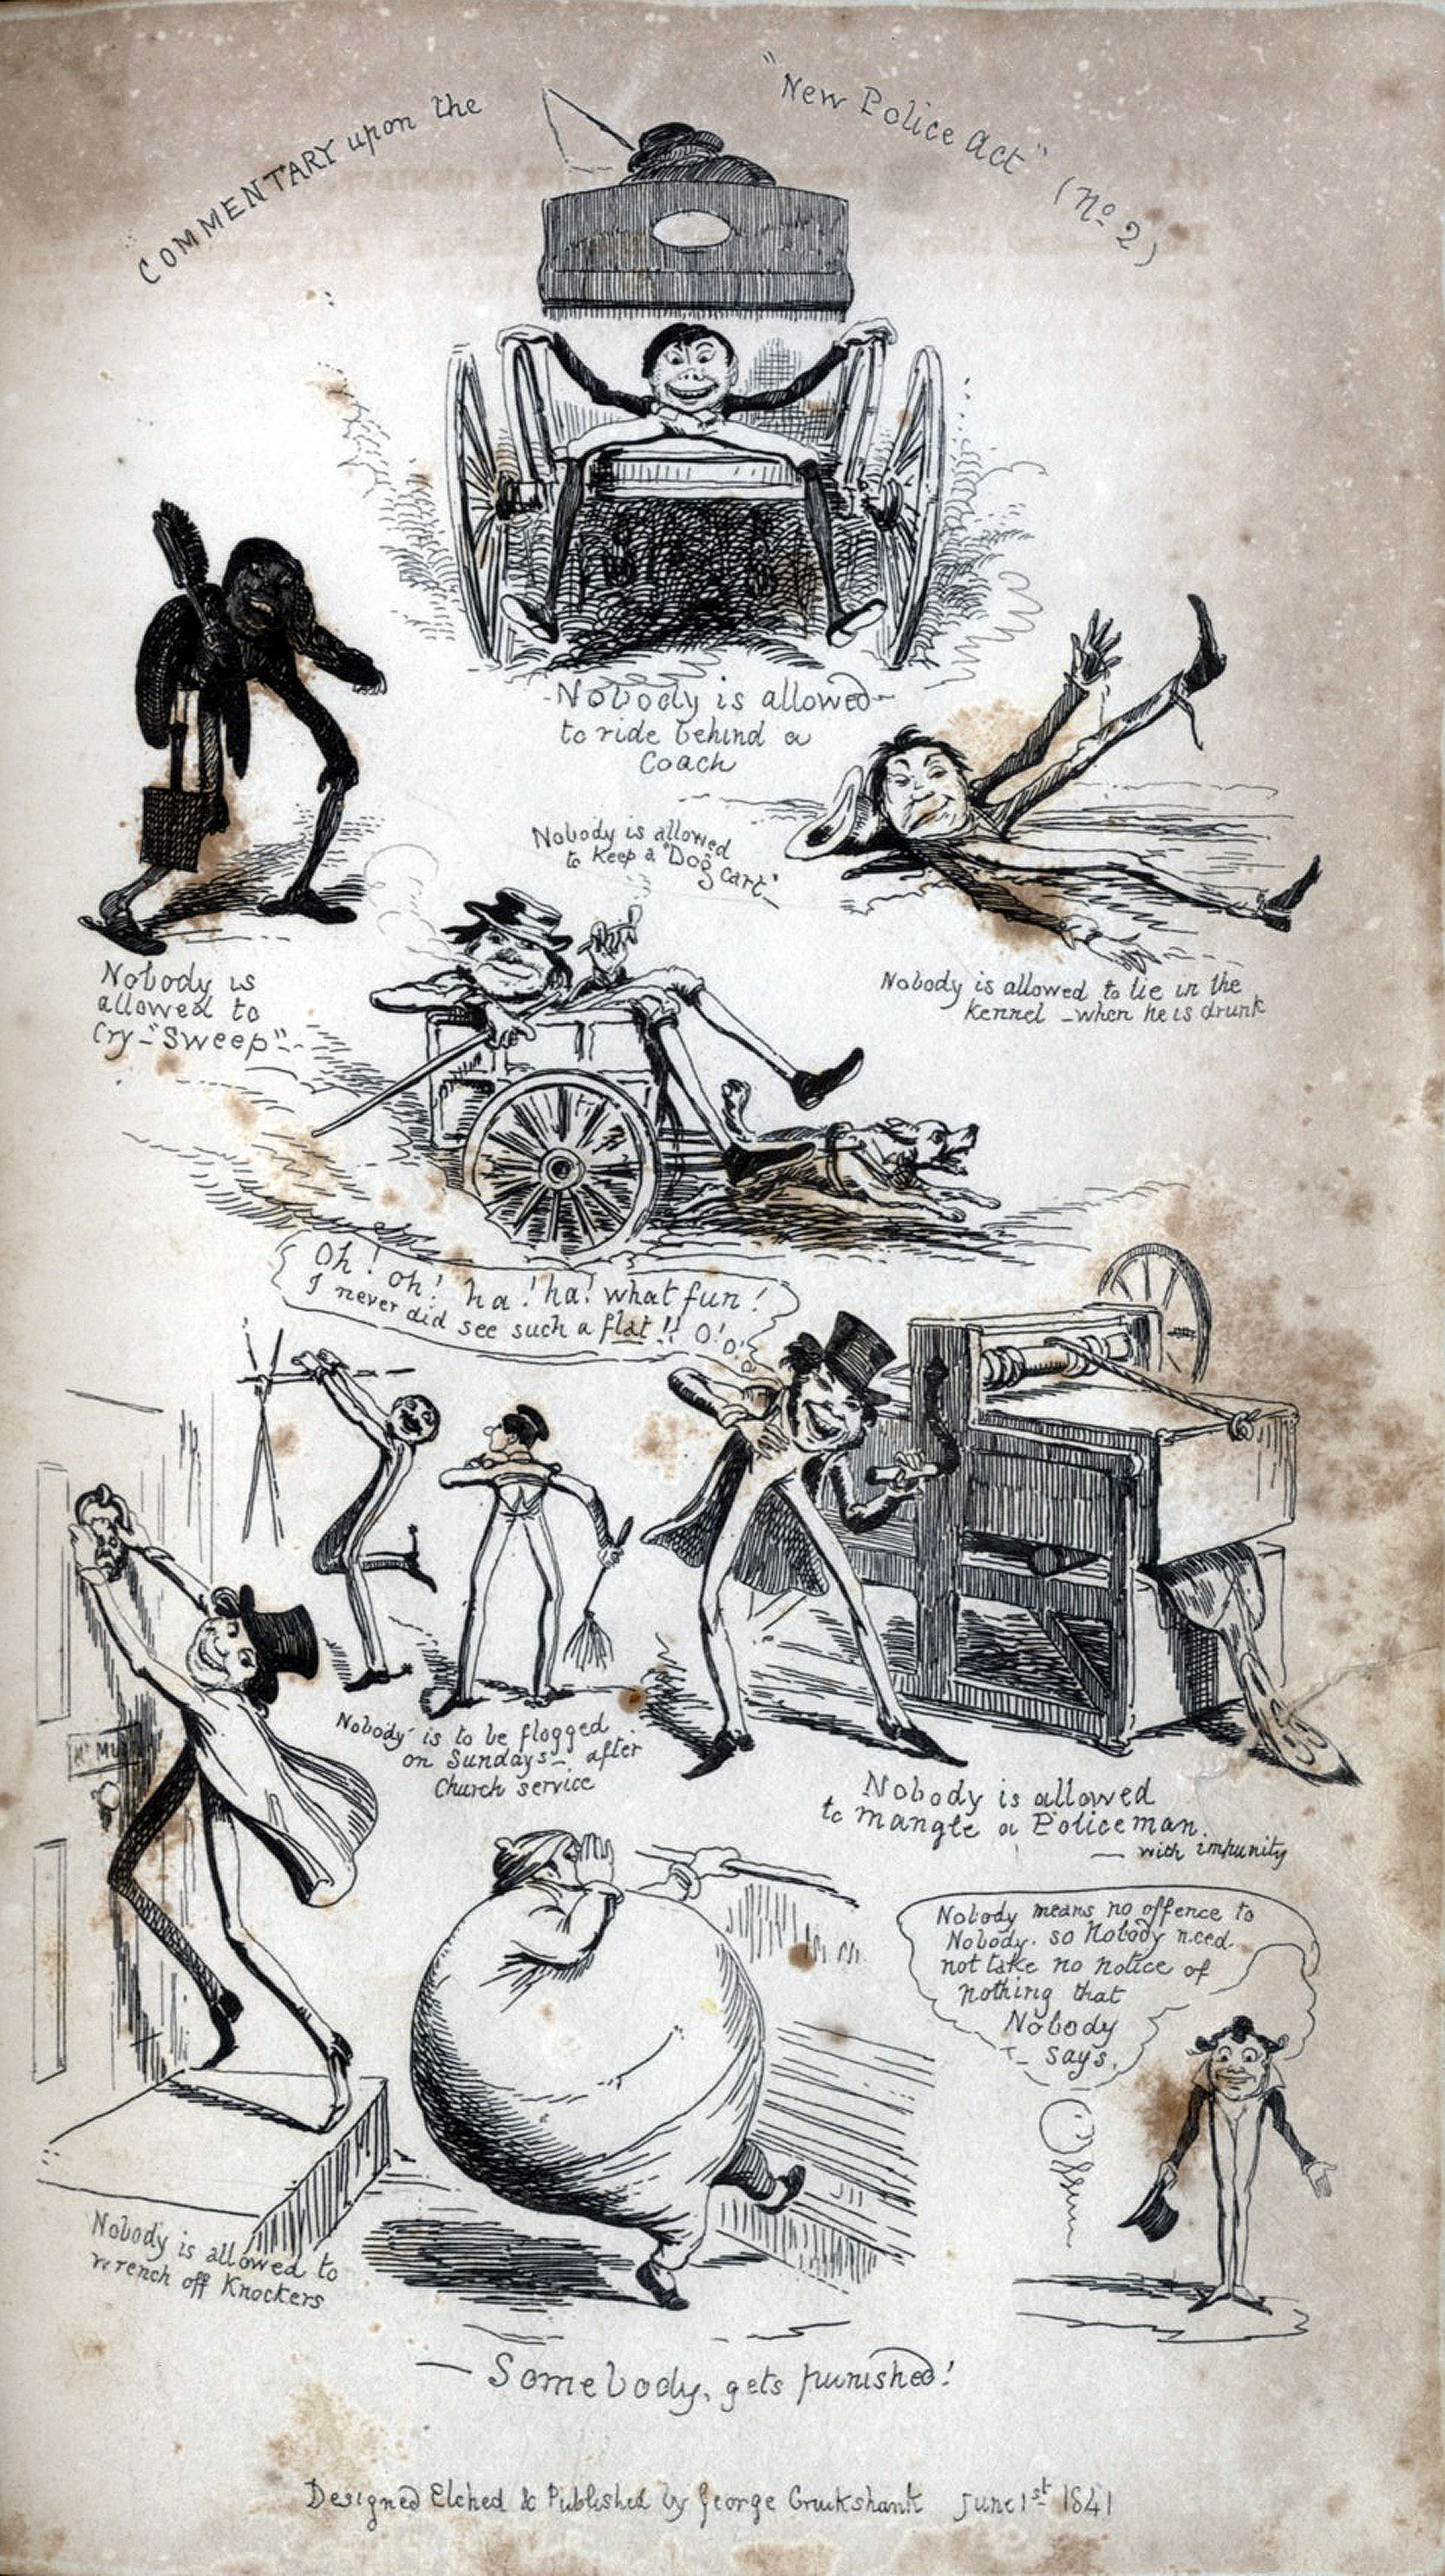 "COMMENTARY upon the "New Police Act" (No. 2)
Nobody is allowed
to ride behind a
Coach
Nobody is allowed
to keep a "Dog
Cart"
Nobody is
allowed to
Cry "Sweep"
Nobody is allowed to lie in the
Kennel - when he is drunk
Oh! oh! ha! ha! what fun!
I never did see such a flat!! O! o!
Nobody is to be flogged
on Sundays - after
Church service
Nobody is allowed
to mangle a Policeman.
— with impunity
Nobody means no offence to
Nobody. so Nobody need
not take no notice of
nothing that
Nobody
says.
Nobody is allowed to
wrench off Knockers
— Somebody, gets punished!
Designed Etched & Published by George Cruikshank June 1st 1841